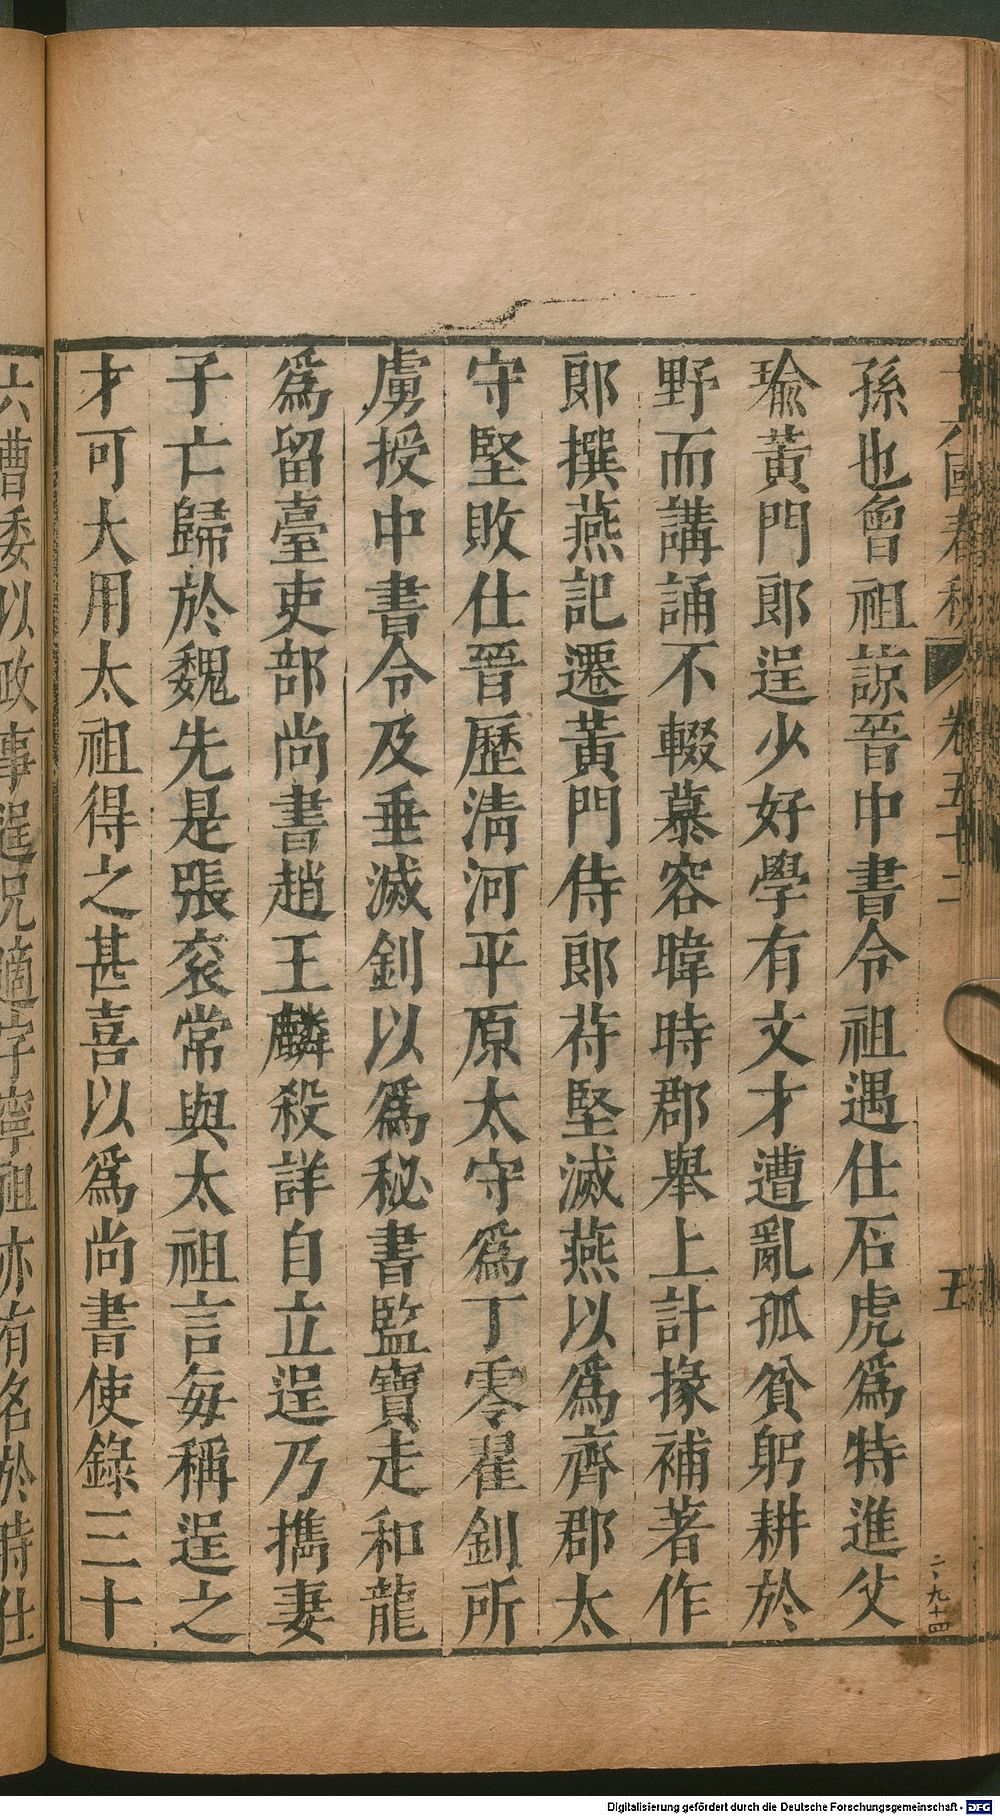 孫也曾祖諒晉中書令祖遇仕石虎爲特進父
瑜黃門郎逞少好學有文才遭亂孤貧躬耕於
野而講誦不輟慕容暐時郡舉上計掾補著作
郎撰燕記遷黃門侍郎苻堅滅燕以爲齊郡太
守堅敗仕晉歷淸河平原太守爲丁零翟釗所
虜授中書令及垂滅釗以爲秘書監寶走和龍
爲留臺吏部尚書趙王麟殺詳自立逞乃擕妻
子亡歸於魏先是張袞常與太祖言每稱逞之
才可大用太祖得之甚喜以爲尚書使錄三十
六曹委以政事逞兄適字寧祖亦有名於時仕
六國春秋 卷五十二 五
二、九十四
Digitalisierung gefördert durch die Deutsche Forschungsgemeinschaft - DFG